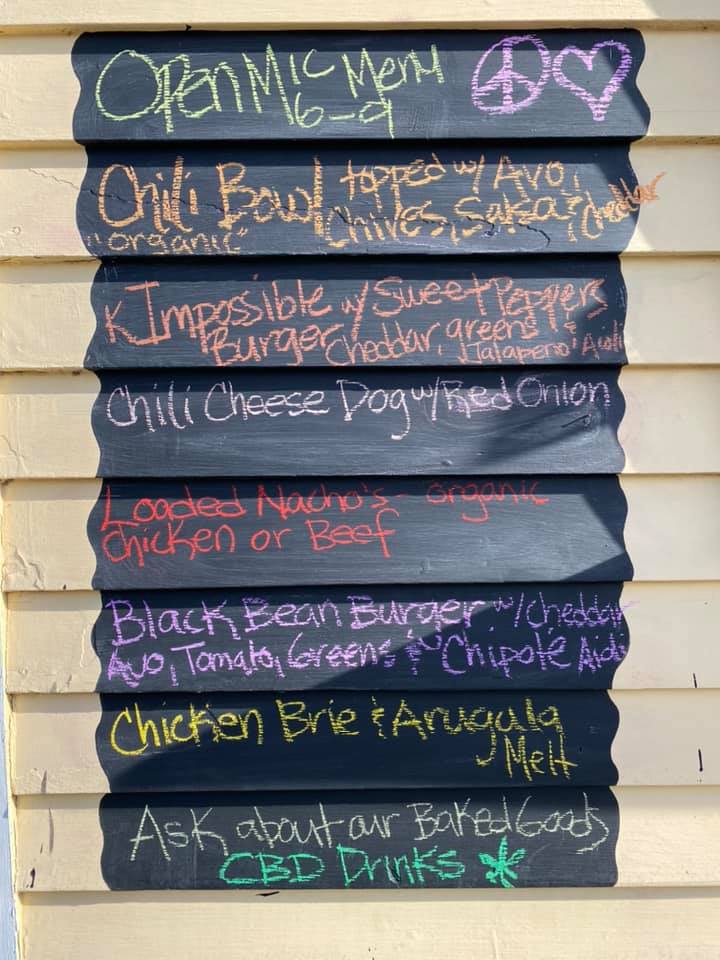 Open Mic Menu
6-9
Chili Bowl topped w/ Avo,
"organic" Chives, Salsa & Cheddar
Impossible w/ Sweet Peppers
Burger Cheddar, greens &
Jalapeno Aioli
Chili Cheese Dog w/ Red Onion
Loaded Nacho's - organic
Chicken or Beef
Black Bean Burger w/ Cheddar
Avo, Tomato, Greens & Chipotle Aioli
Chicken Brie & Arugula
Melt
Ask about our Baked Goods
CBD Drinks